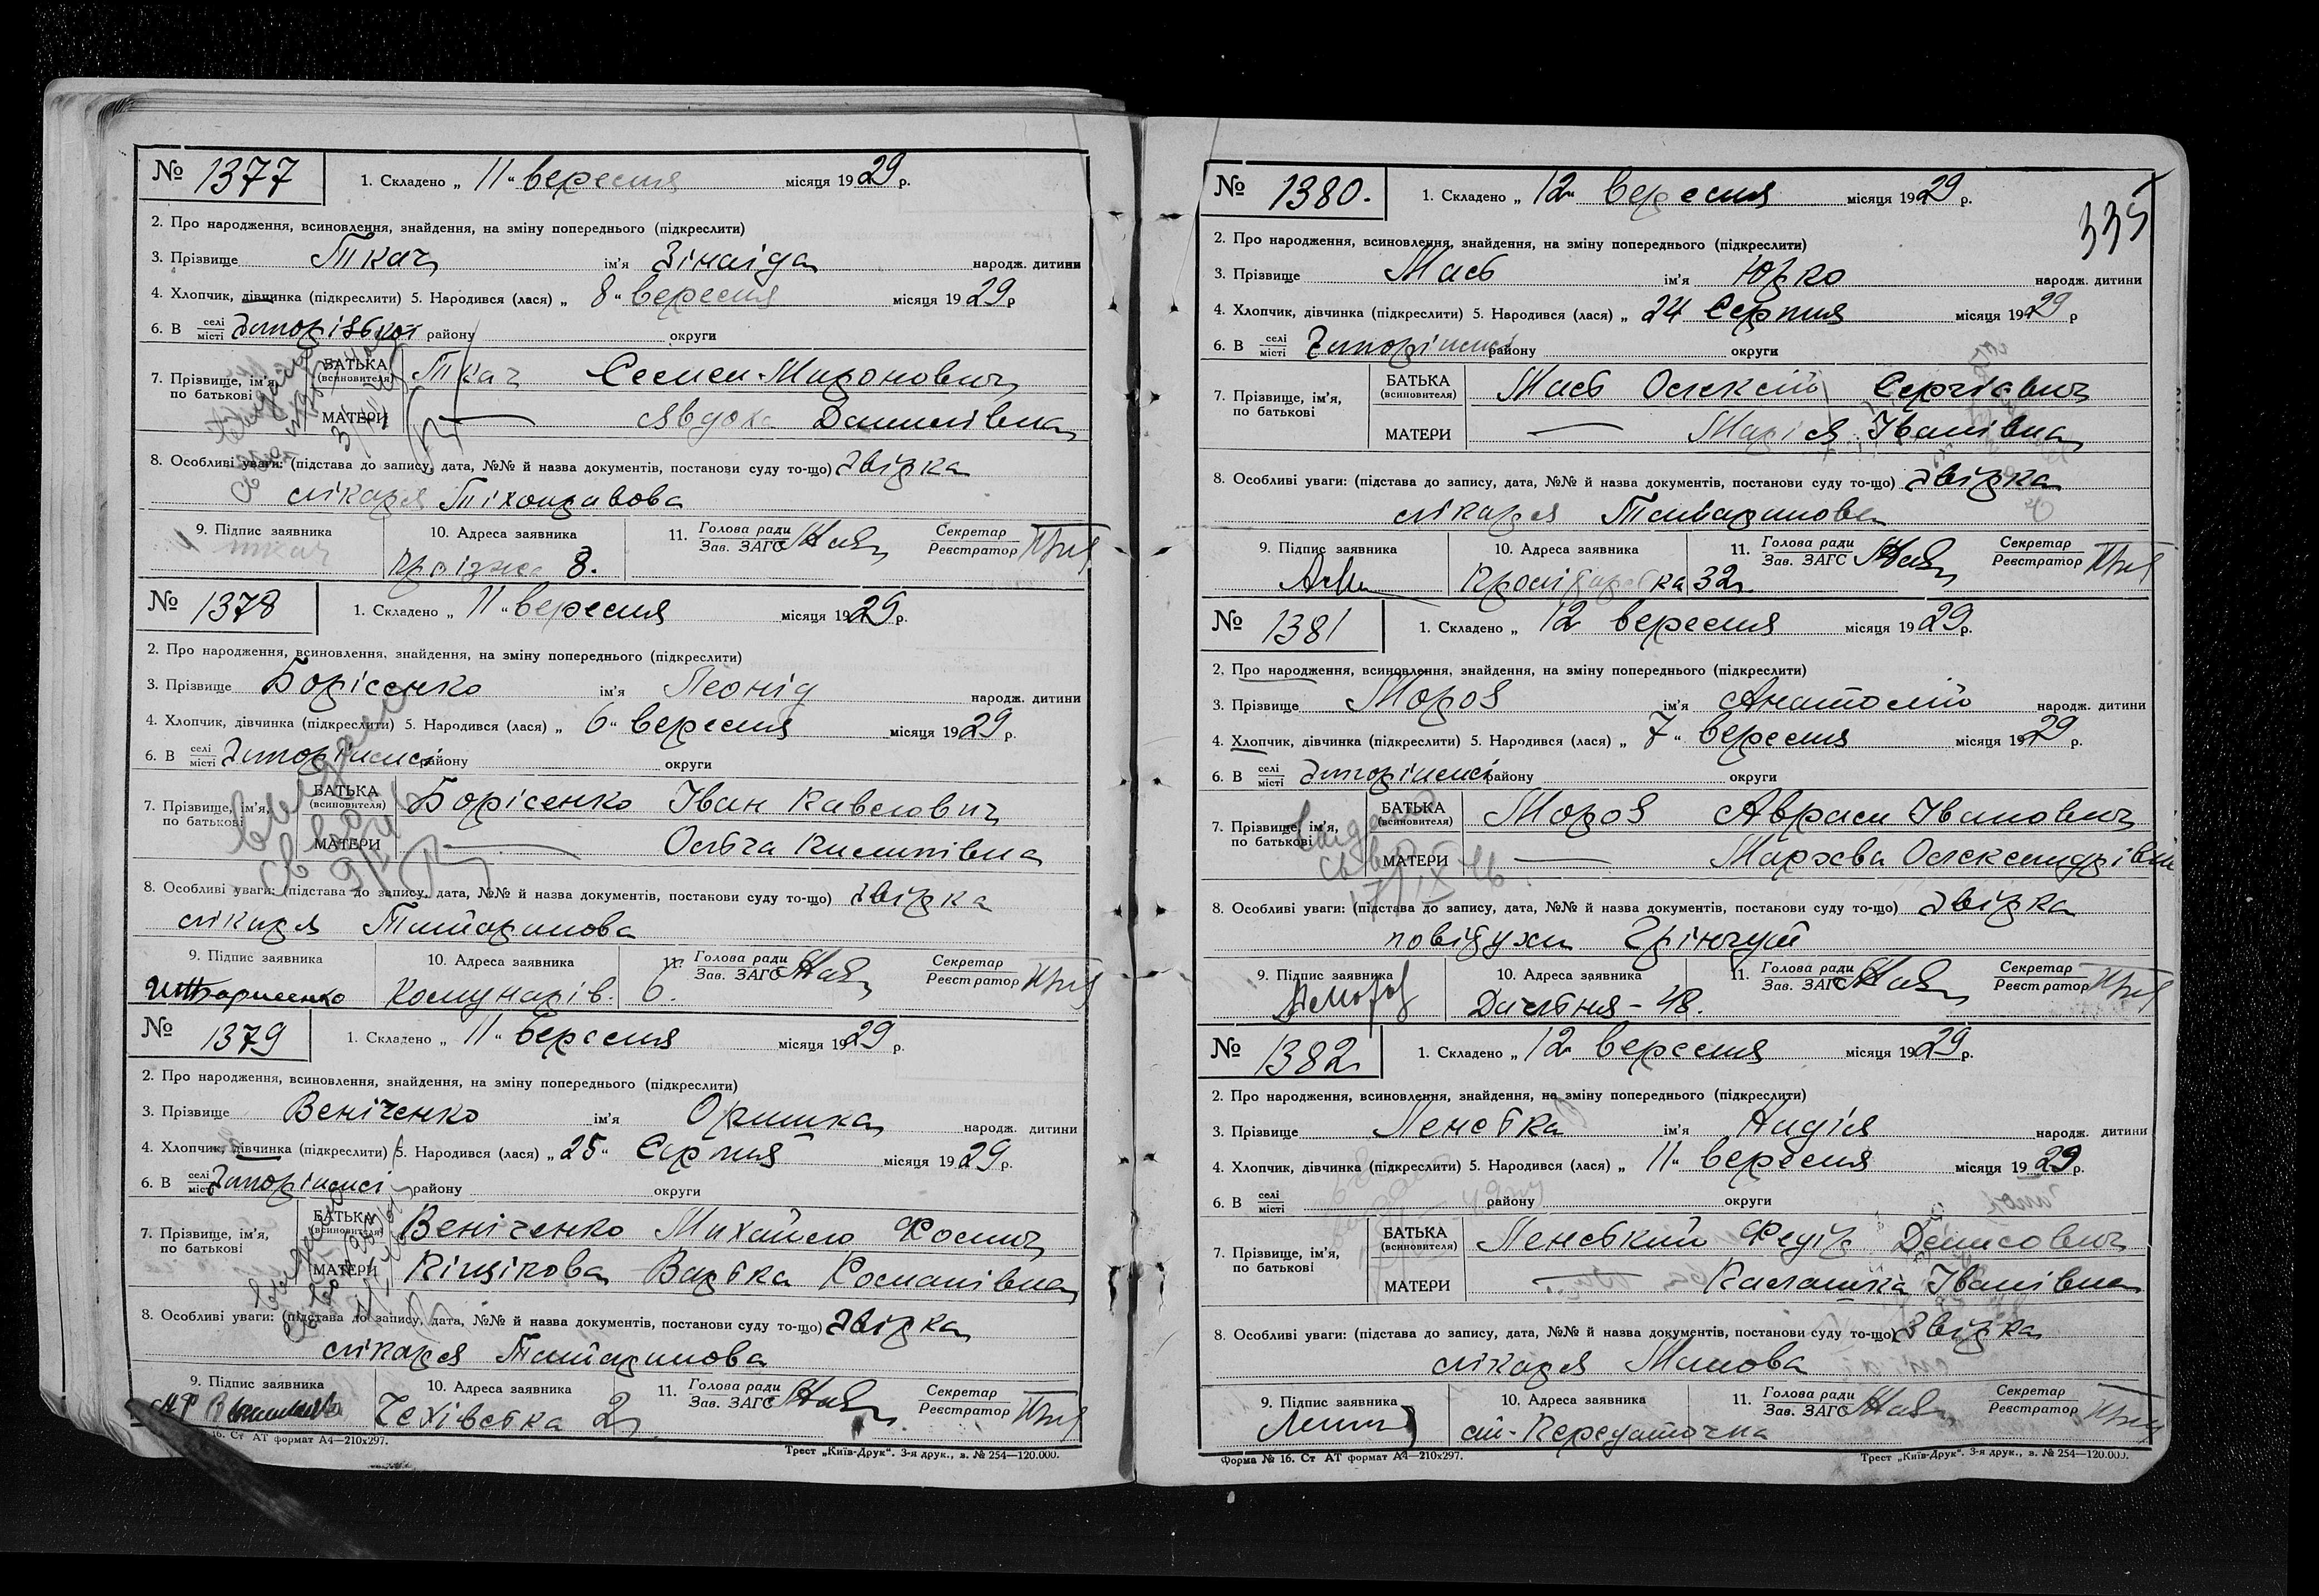 № 1377 1. Складено „ 11 " вересня місяця 1929 р.
2. Про народження, всиновлення, знайдення, на зміну попереднього (підкреслити)
3. Прізвище Ткач ім'я Зінаіда народж. дитини
4. Хлопчик, дівчинка (підкреслити) 5. Народився (лася) „ 8 " вересня місяця 1929 р
6. В селі місті району округи
7. Прізвище, ім'я, по батькові БАТЬКА (всиновителя) Ткач Семен Миронович
МАТЕРИ — Явдоха Данилівна
8. Особливі уваги: (підстава до запису, дата, №№ й назва документів, постанови суду то-що) звірка
лікаря
9. Підпис заявника 10. Адреса заявника 11. Голова ради Зав. ЗАГС Секретар Реєстратор
ткач 8.
№ 1378 1. Складено „ 11 " вересня місяця 1929 р.
2. Про народження, всиновлення, знайдення, на зміну попереднього (підкреслити)
3. Прізвище Борісенко ім'я Леонід народж. дитини
4. Хлопчик, дівчинка (підкреслити) 5. Народився (лася) „ 6 " вересня місяця 1929 р.
6. В селі місті району округи
7. Прізвище, ім'я, по батькові БАТЬКА (всиновителя) Борісенко Іван Павлович
МАТЕРИ — Ольга Пилипівна
8. Особливі уваги: (підстава до запису, дата, №№ й назва документів, постанови суду то-що) звірка
лікаря
9. Підпис заявника 10. Адреса заявника 11. Голова ради Зав. ЗАГС Секретар Реєстратор
Комунарів. 6.
№ 1379 1. Складено „ 11 " вересня місяця 1929 р.
2. Про народження, всиновлення, знайдення, на зміну попереднього (підкреслити)
3. Прізвище Веніченко ім'я Оришка народж. дитини
4. Хлопчик, дівчинка (підкреслити) 5. Народився (лася) „ 25 " Серпня місяця 1929 р.
6. В селі місті району округи
7. Прізвище, ім'я, по батькові БАТЬКА (всиновителя) Веніченко Михайло Фомич
МАТЕРИ Варвка
8. Особливі уваги: (підстава до запису, дата, №№ й назва документів, постанови суду то-що) звірка
лікаря
9. Підпис заявника 10. Адреса заявника 11. Голова ради Зав. ЗАГС Секретар Реєстратор
Чехівська 2
16. Ст АТ формат А4—210х297. Трест „Київ-Друк". 3-я друк., з. № 254—120.000.
335
№ 1380. 1. Складено „ 12 " вересня місяця 1929 р.
2. Про народження, всиновлення, знайдення, на зміну попереднього (підкреслити)
3. Прізвище Мась ім'я Юрко народж. дитини
4. Хлопчик, дівчинка (підкреслити) 5. Народився (лася) „ 24 Серпня місяця 1929 р
6. В селі місті району округи
7. Прізвище, ім'я, по батькові БАТЬКА (всиновителя) Мась Олексій Сергієвич
МАТЕРИ — Марія Іванівна
8. Особливі уваги: (підстава до запису, дата, №№ й назва документів, постанови суду то-що) звірка
лікаря
9. Підпис заявника 10. Адреса заявника 11. Голова ради Зав. ЗАГС Секретар Реєстратор
32
№ 1381 1. Складено „ 12 вересня місяця 1929 р.
2. Про народження, всиновлення, знайдення, на зміну попереднього (підкреслити)
3. Прізвище Мороз ім'я Анатолій народж. дитини
4. Хлопчик, дівчинка (підкреслити) 5. Народився (лася) „ 7 " вересня місяця 1929 р.
6. В селі місті району округи
7. Прізвище, ім'я, по батькові БАТЬКА (всиновителя) Мороз Аврам Іванович
МАТЕРИ — Олександрівна
8. Особливі уваги: (підстава до запису, дата, №№ й назва документів, постанови суду то-що) звірка
повідухи
9. Підпис заявника 10. Адреса заявника 11. Голова ради Зав. ЗАГС Секретар Реєстратор
Дальня - 48.
№ 1382 1. Складено „ 12 вересня місяця 1929 р.
2. Про народження, всиновлення, знайдення, на зміну попереднього (підкреслити)
3. Прізвище Ленська ім'я Надія народж. дитини
4. Хлопчик, дівчинка (підкреслити) 5. Народився (лася) „ 11 " вересня місяця 1929 р.
6. В селі місті району округи
7. Прізвище, ім'я, по батькові БАТЬКА (всиновителя) Ленський Федір Денисович
МАТЕРИ — Іванівна
8. Особливі уваги: (підстава до запису, дата, №№ й назва документів, постанови суду то-що) Звірка
лікаря
9. Підпис заявника 10. Адреса заявника 11. Голова ради Зав. ЗАГС Секретар Реєстратор
Форма № 16. Ст АТ формат А4—210х297. Трест „Київ-Друк". 3-я друк., з. № 254—120.000.